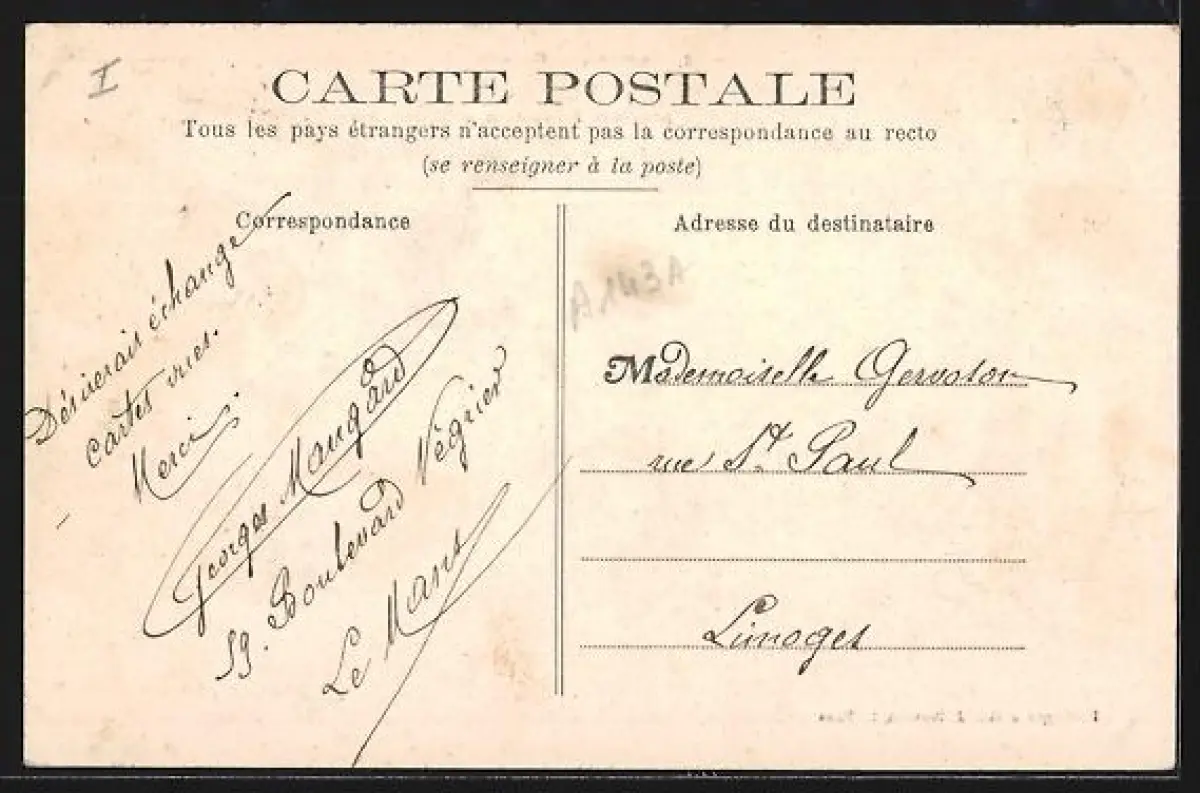 I
CARTE POSTALE
Tous les pays étrangers n'acceptent pas la correspondance au recto
(se renseigner à la poste)
Correspondance
Désirerais échange
cartes vues.
Merci.
Georges Maugard
59. Boulevard Négrier
Le Mans
Adresse du destinataire
A143A
Mademoiselle Gervoson
rue St. Paul
Limoges